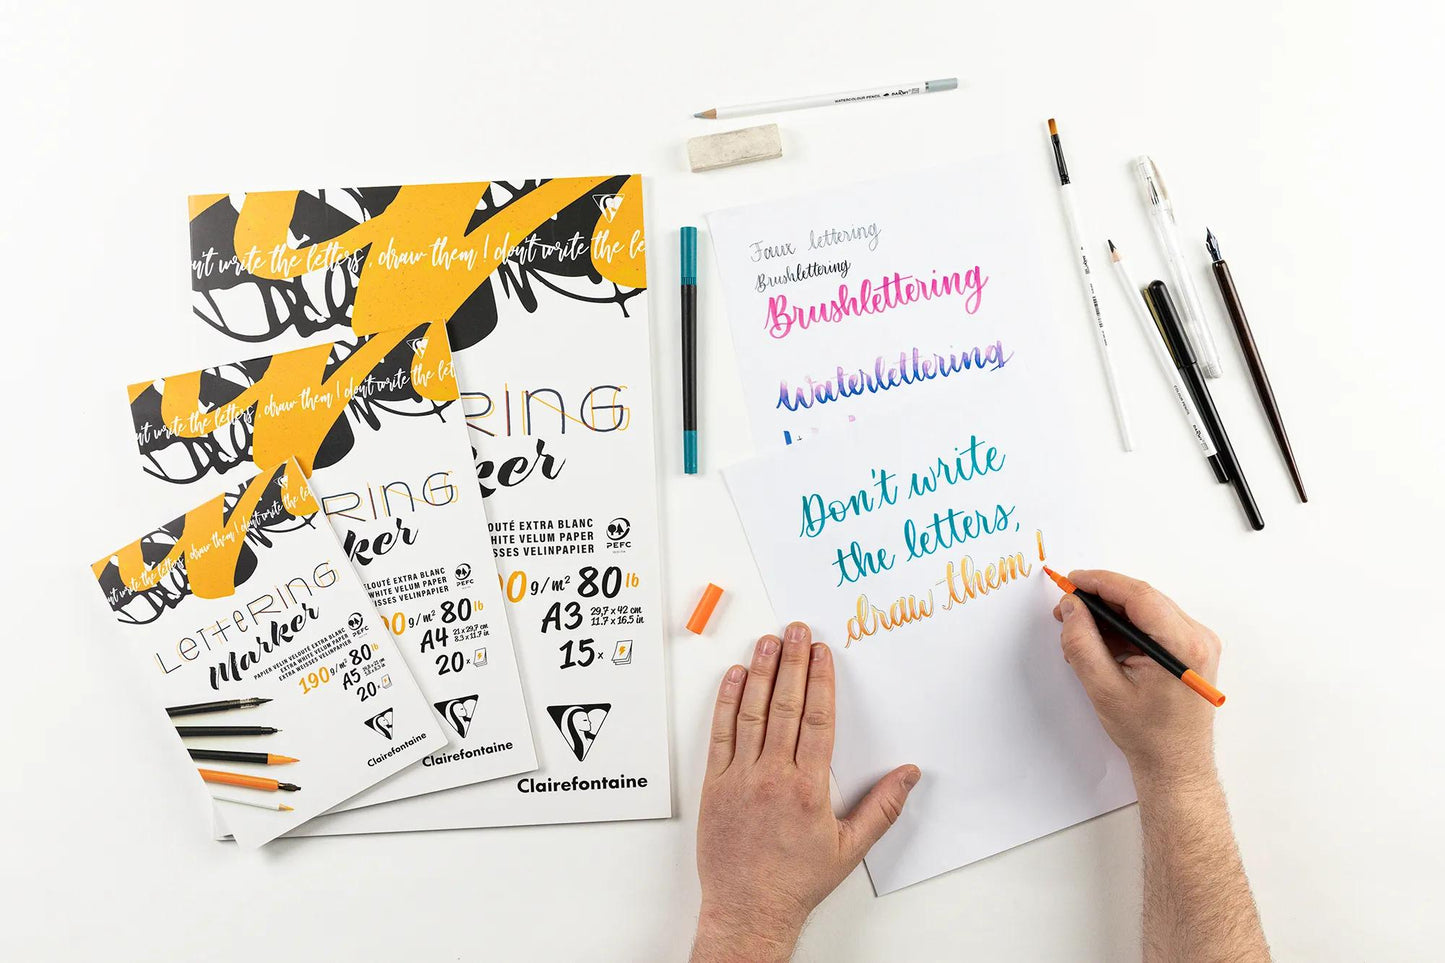 n't write the letters, draw them! don't write the le
RING
ker
OUTÉ EXTRA BLANC
HITE VELUM PAPER
SSES VELINPAPIER
PEFC
90g/m² 80lb
A3 29,7 x 42 cm
11.7 x 16.5 in
15x
Clairefontaine
n't write the letters, draw them! don't write the let
RING
ker
VELOUTÉ EXTRA BLANC
WHITE VELUM PAPER
WEISSES VELINPAPIER
PEFC
90g/m² 80lb
A4 21 x 29,7 cm
8.3 x 11.7 in
20x
Clairefontaine
n't write the letters, draw them! don't write the let
LETTERING
Marker
PAPIER VELIN VELOUTÉ EXTRA BLANC
EXTRA WHITE VELUM PAPER
EXTRA WEISSES VELINPAPIER
PEFC
190g/m² 80lb
A5
20x
Clairefontaine
WATERCOLOUR PENCIL DARWI
Faux lettering
Brushlettering
Brushlettering
Waterlettering
Don't write
the letters,
draw them!